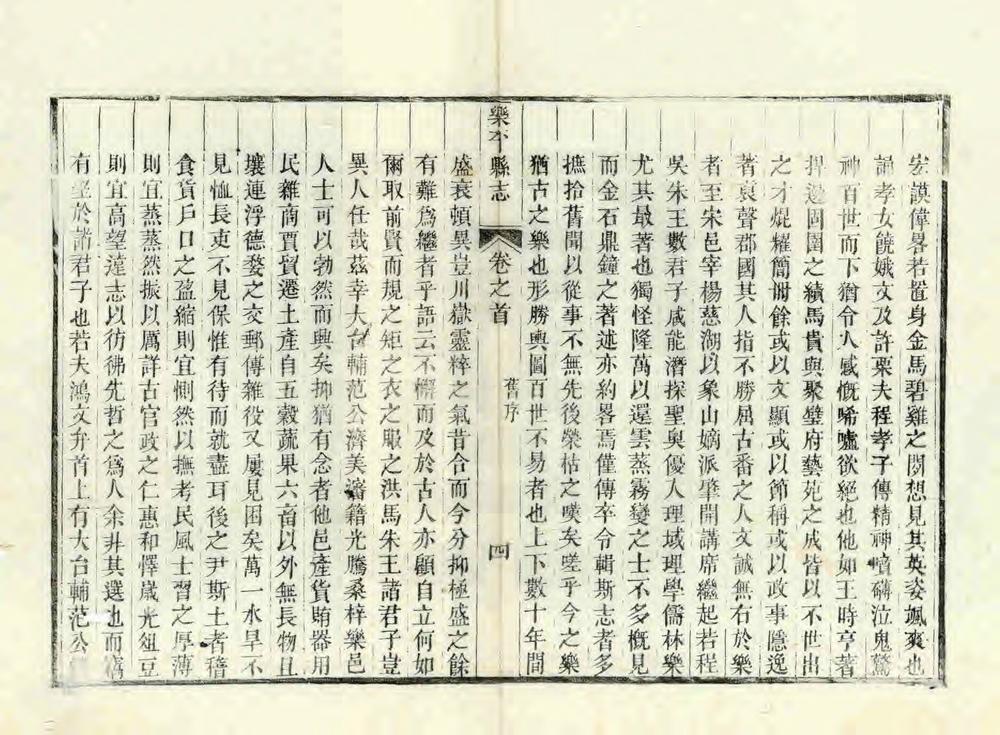 宏謨偉畧若置身金馬碧雞之間想見其英姿颯爽也
誦孝女饒娥文及許栗夫程孝子傳精神噴礴泣鬼驚
神百世而下猶令人感慨唏噓欲絕也他如王時亨著
捍邊固圉之績馬貴與聚璧府藝苑之成皆以不世出
之才焜燿簡冊餘或以文顯或以節稱或以政事隱逸
著哀聲郡國其人指不勝屈古番之人文誠無右於樂
者至宋邑宰楊慈湖以象山嫡派肇開講席繼起若程
吳朱王數君子咸能潛探聖奧優入理域理學儒林樂
尤其最著也獨怪隆萬以還雲蒸霧變之士不多概見
而金石鼎鐘之著述亦約畧焉僅傳卒令輯斯志者多
摭拾舊聞以從事不無先後榮枯之嘆矣嗟乎今之樂
猶古之樂也形勝輿圖百世不易者也上下數十年間
樂平縣志
卷之首
舊序
四
盛衰頓異豈川嶽靈粹之氣昔合而今分抑極盛之餘
有難爲繼者乎語云不懈而及於古人亦顧自立何如
爾取前賢而規之矩之衣之服之洪馬朱王諸君子豈
異人任哉茲幸大台輔范公濟美瀋籍光騰桑梓樂邑
人士可以勃然而興矣抑猶有念者他邑產貨賄器用
民雜商賈貿遷土產自五穀蔬果六畜以外無長物且
壤連浮德婺之交郵傳雜役又屢見困矣萬一水旱不
見恤長吏不見保惟有待而就盡耳後之尹斯土者稽
食貨戶口之盈縮則宜惻然以撫考民風士習之厚薄
則宜蒸蒸然振以厲詳古官政之仁惠和懌歲光俎豆
則宜高望遠志以彷彿先哲之爲人余非其選也而竊
有望於諸君子也若夫鴻文弁首上有大台輔范公